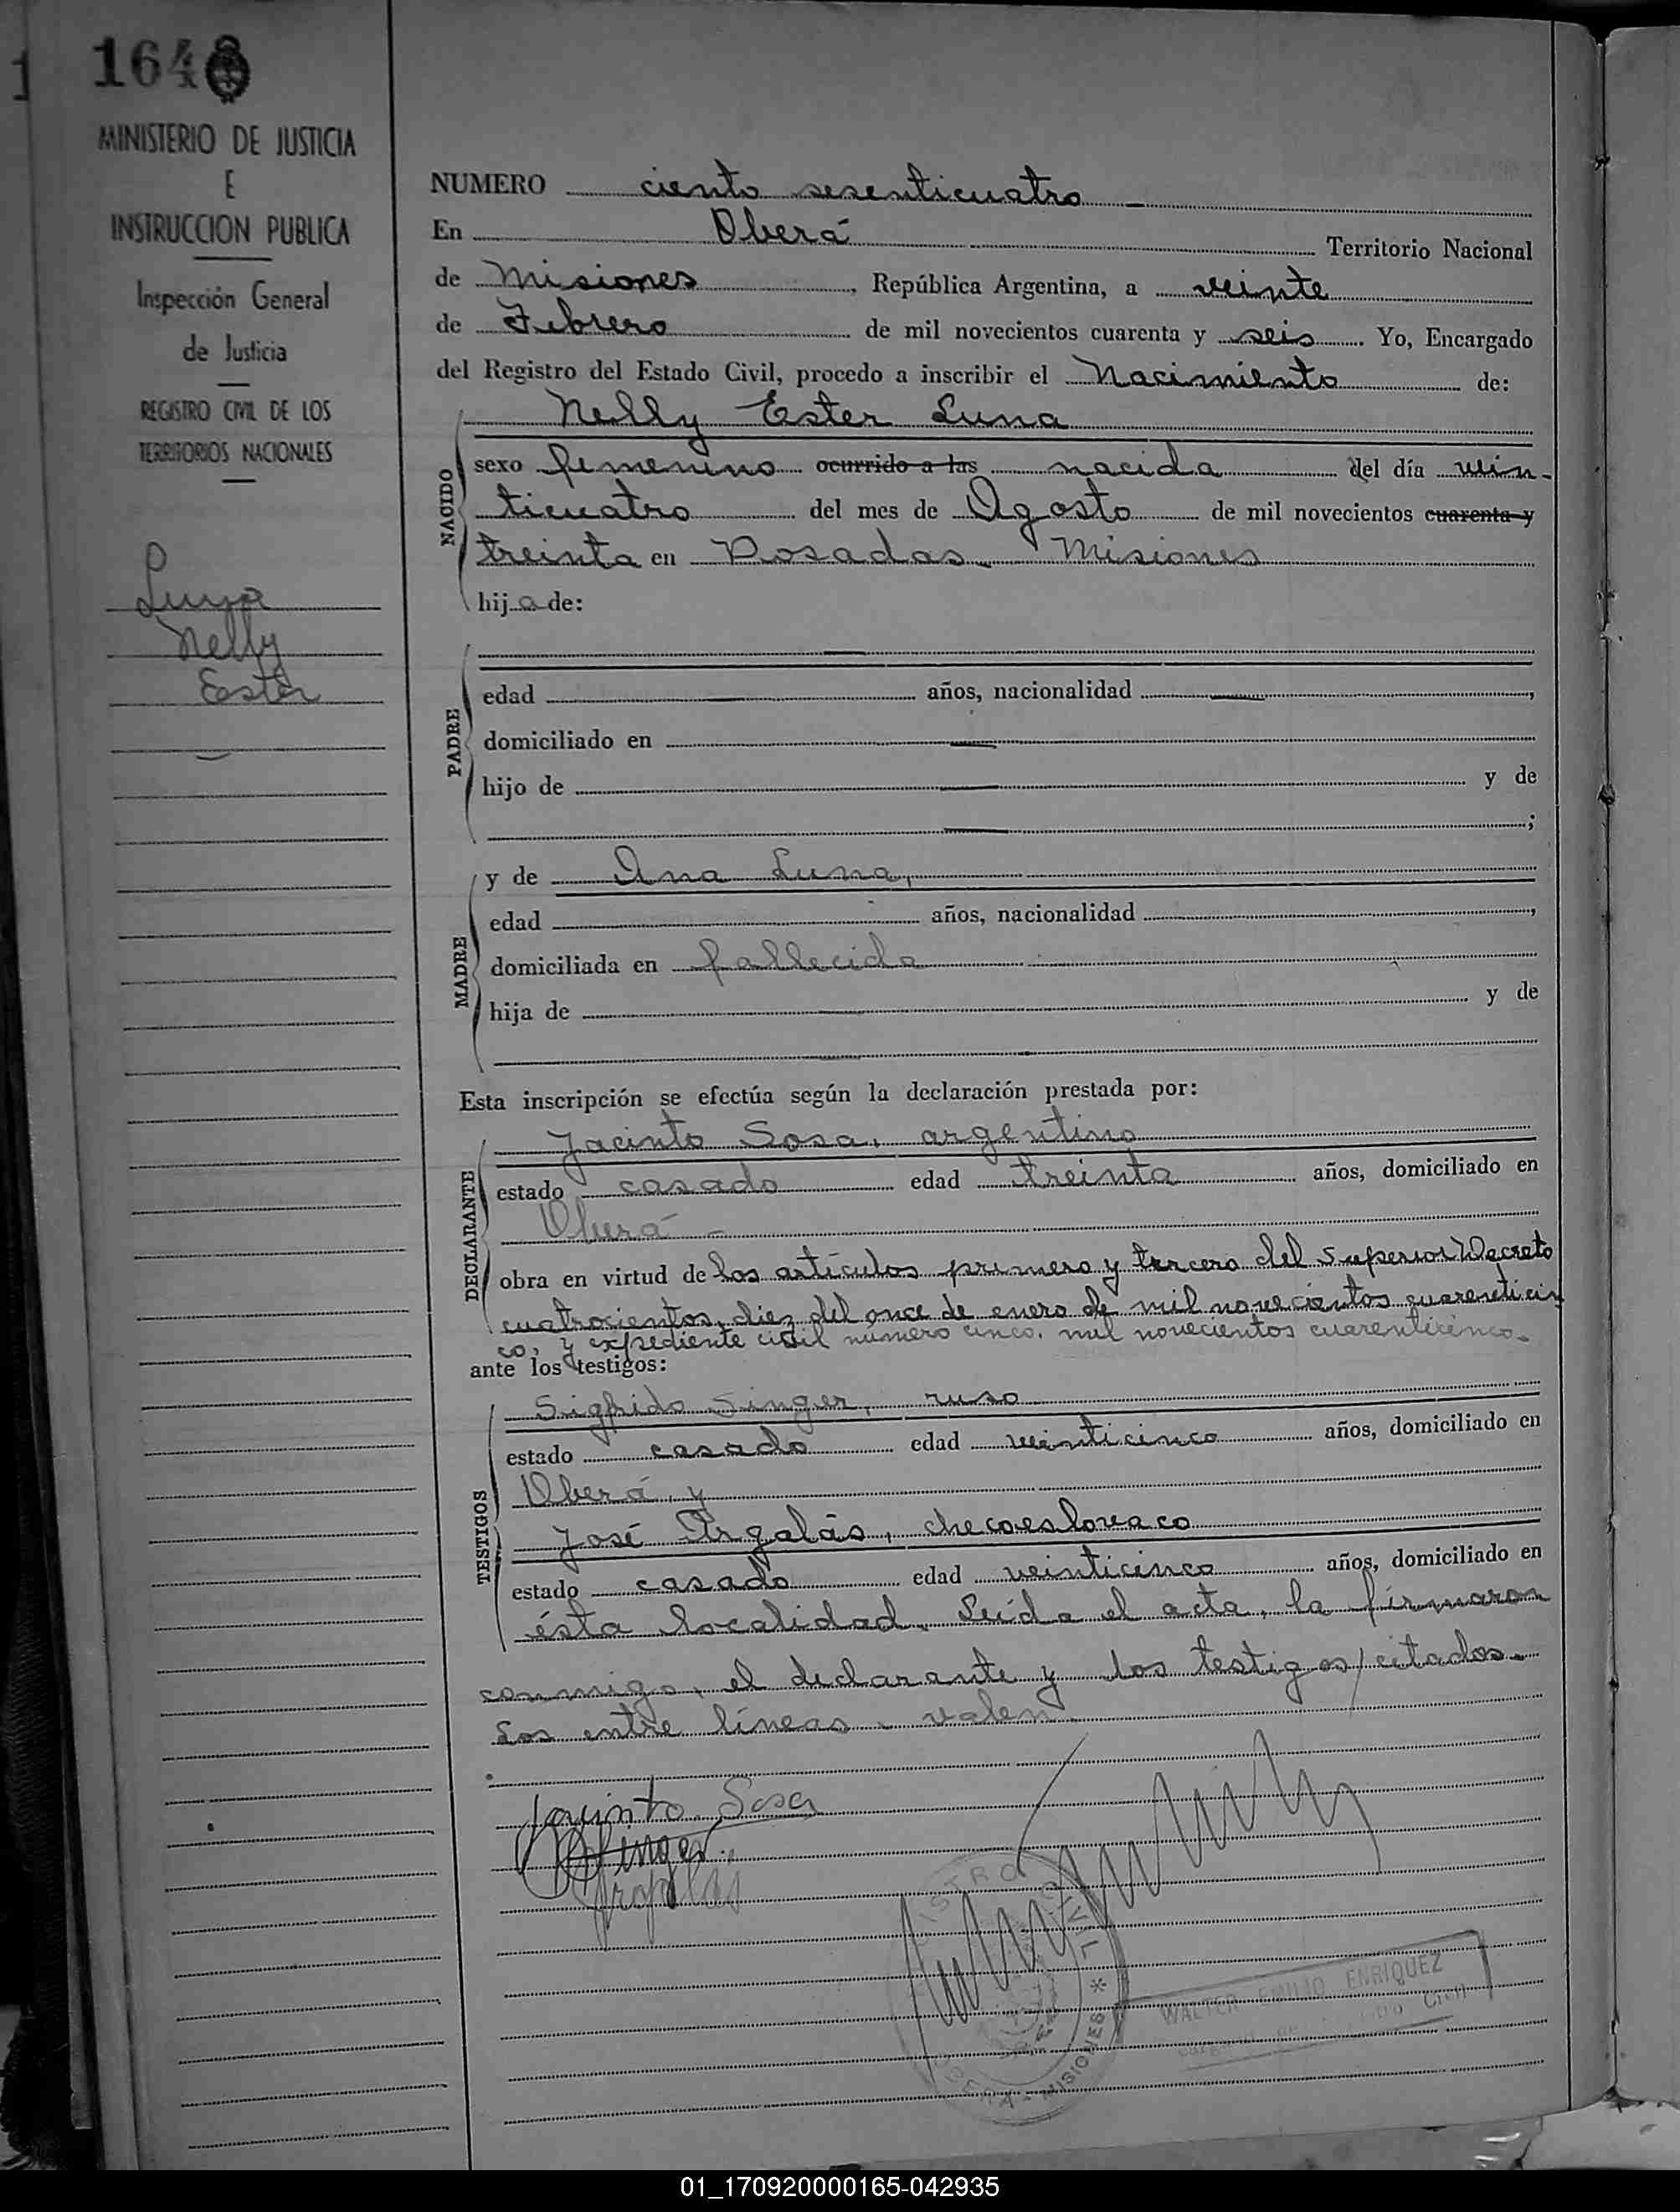 164
MINISTERIO DE JUSTICIA
E
INSTRUCCION PUBLICA
Inspección General
de Justicia
REGISTRO CIVIL DE LOS
TERRITORIOS NACIONALES
Luna
Nelly
Ester
NUMERO ciento sesenticuatro
En Oberá Territorio Nacional
de Misiones, República Argentina, a veinte
de Febrero de mil novecientos cuarenta y seis. Yo, Encargado
del Registro del Estado Civil, procedo a inscribir el Nacimiento de:
NACIDO
Nelly Ester Luna
sexo femenino ocurrido a las nacida del día vein-
ticuatro del mes de Agosto de mil novecientos cuarenta y
treinta en Posadas Misiones
hija de:
PADRE
edad años, nacionalidad ,
domiciliado en
hijo de y de
;
MADRE
y de Ana Luna,
edad años, nacionalidad ,
domiciliada en fallecida
hija de y de
Esta inscripción se efectúa según la declaración prestada por:
DECLARANTE
Jacinto Sosa, argentino
estado casado edad treinta años, domiciliado en
Oberá
obra en virtud de los artículos primero y tercero del Superior Decreto
cuatrocientos diez del once de enero de mil novecientos cuarenticin
co, y expediente civil número cinco, mil novecientos cuarenticinco.
ante los testigos:
TESTIGOS
Sigfrido Singer, ruso
estado casado edad veinticinco años, domiciliado en
Oberá, y
José Argalás, checoeslovaco
estado casado edad veinticinco años, domiciliado en
ésta localidad. Leída el acta, la firmaron
conmigo, el declarante y los testigos citados.
Los entre líneas. valen
Jacinto Sosa
Singer
Argalás
REGISTRO CIVIL * OBERA - MISIONES
WALTER EMILIO ENRIQUEZ
Civil
01_170920000165-042935